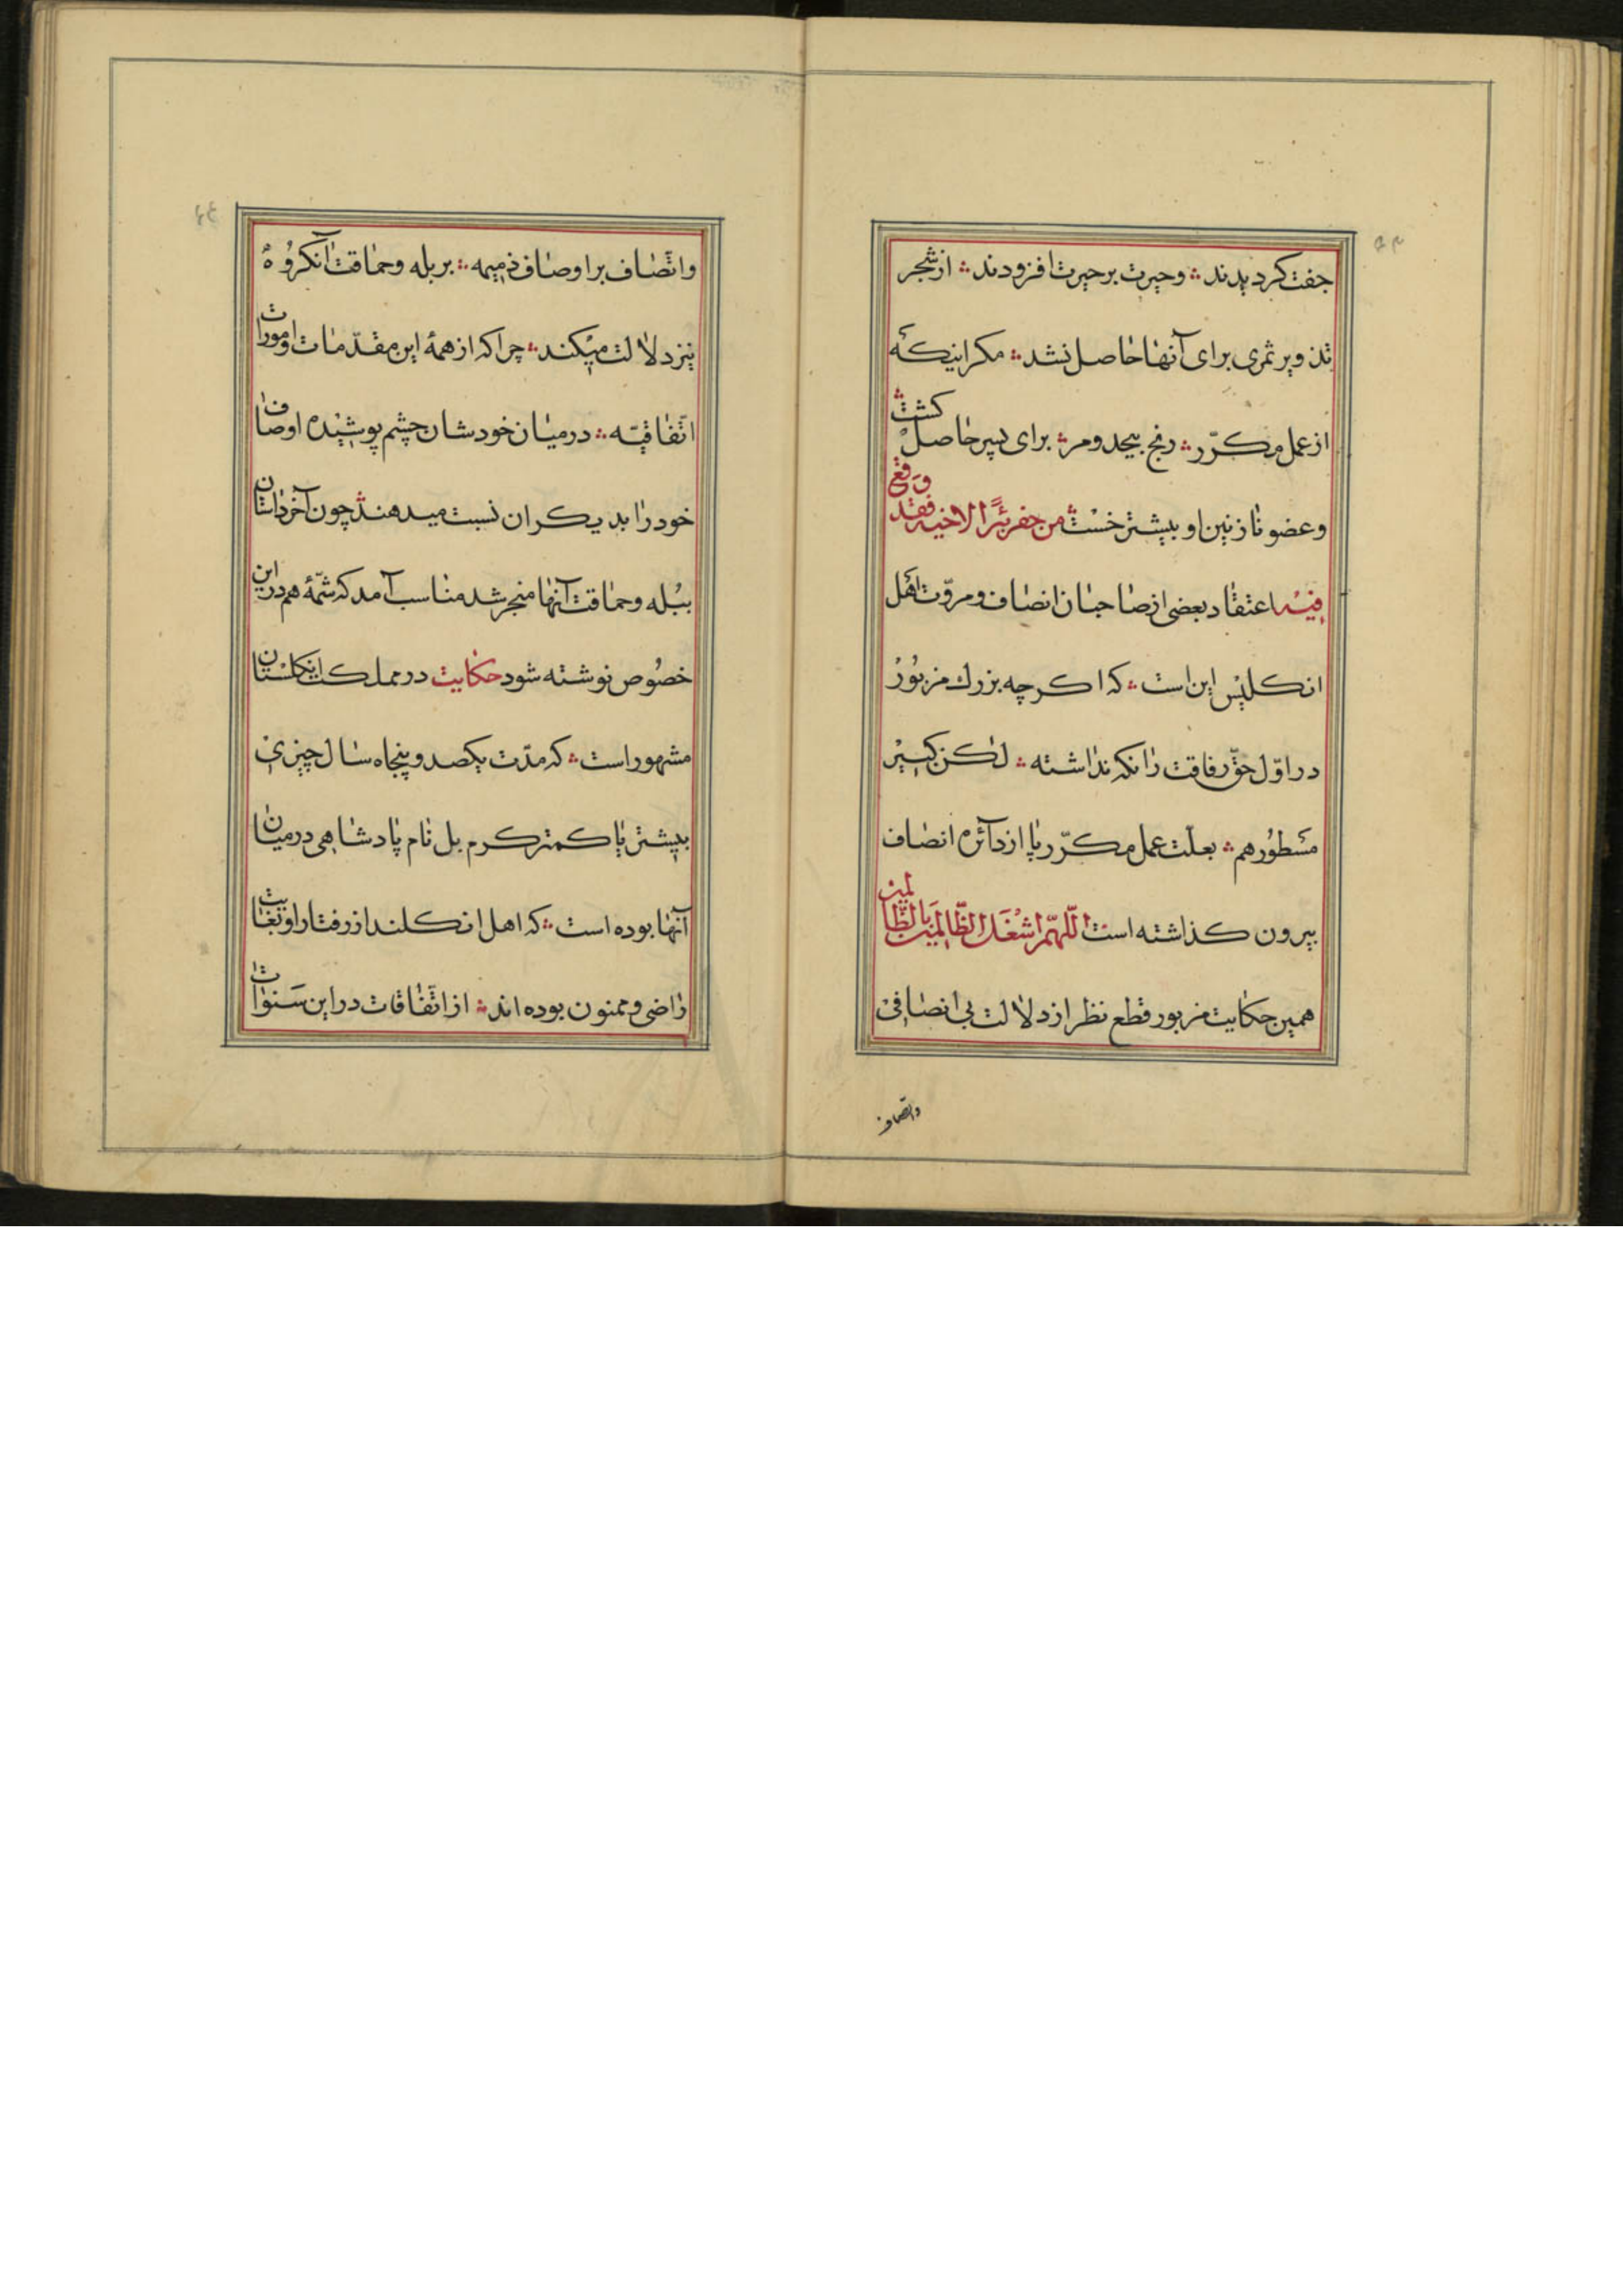 جفت کردیدند ؞ وحیرت برحیرت افزودند ؞ ازشجر
تذویر ثمری برای آنها حاصل نشد ؞ مکر اینکه
ازعمل مکرّر ؞ رنج بیحد ومر ؞ برای پسر حاصل کشت ؞
وعضو نازنین او بیشتر خست ؞ من حفر بئرًا لاخیه فقد وقع
فیه اعتقاد بعضی ازصاحبان انصاف ومروّت اهل
انکلیس این است ؞ که اکرچه بزرك مزبور
در اوّل حقّ رفاقت را نکه نداشته ؞ لکن کبیر
مسطور هم ؞ بعلّت عمل مکرّر پا از دائره انصاف
بیرون کذاشته است اللّهمّ اشغل الظّالمین بالظّالمین
همین حکایت مزبور قطع نظر از دلالت بی انصافی
واتصاف
واتّصاف بر اوصاف ذمیمه ؞ بر بله وحماقت آنکروه
نیز دلالت میکند ؞ چرا که از همهٔ این مقدّمات وامورات
اتّفاقیّه ؞ درمیان خودشان چشم پوشیده اوصاف
خود را بدیکران نسبت میدهند ؞ چون آخر داستان
ببله وحماقت آنها منجر شد مناسب آمد که شمّهٔ هم دراین
خصوص نوشته شود حکایت در مملکت انکلستان
مشهور است ؞ که مدّت یکصد وپنجاه سال چیزی
بیشتر یا کمتر کرم بل نام پادشاهی درمیان
آنها بوده است ؞ که اهل انکلند از رفتار او بغایت
راضی وممنون بوده اند ؞ از اتّفاقات دراین سنوات